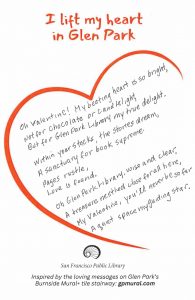 I lift my heart
in Glen Park
Oh Valentine! My beating heart is so bright,
Not for chocolate or candlelight,
But for Glen Park Library my true delight.
Within your stacks, the stories dream,
A sanctuary for book supreme.
Pages rustle,
Love is found,
Oh Glen Park Library, wise and clear,
A treasure nestled close for all here,
My Valentine, you'll never be so far
A quiet space my guiding star.
San Francisco Public Library
Inspired by the loving messages on Glen Park's
Burnside Mural+ tile stairway: gpmural.com